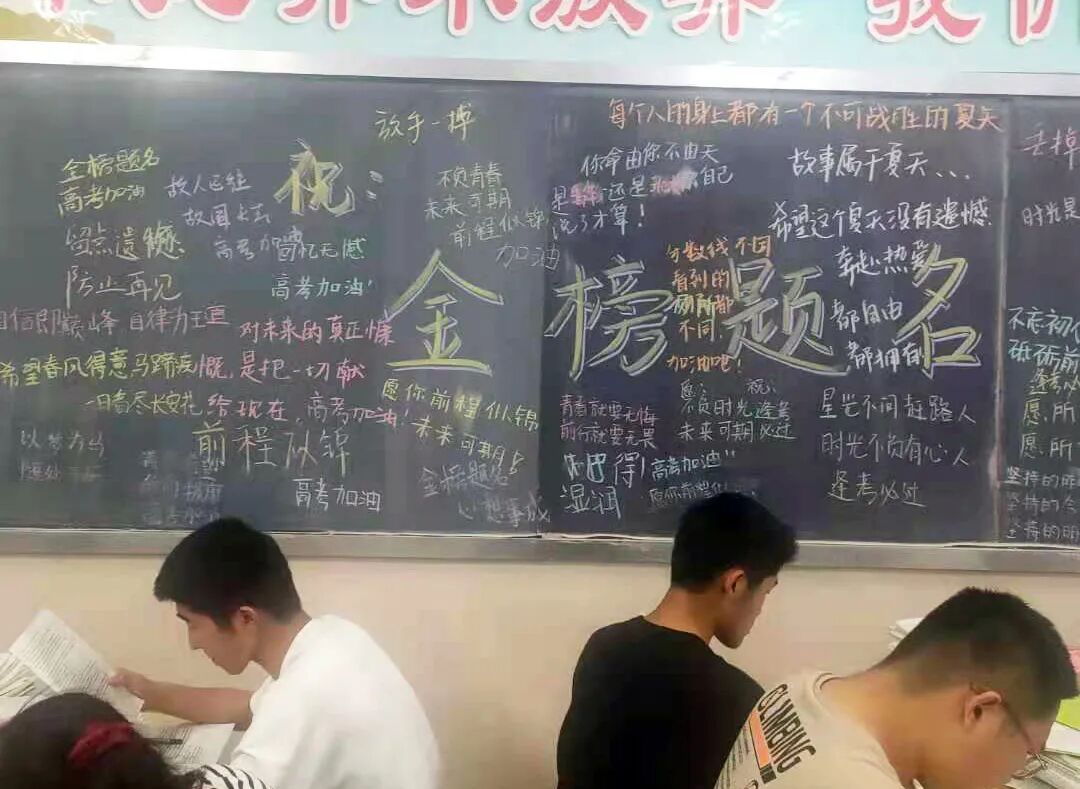 我们
放手一搏
每个人的身上都有一个不可战胜的夏天
金榜题名
高考加油
故人已往
祝:
不负青春
未来可期
前程似锦
加油
你命由你不由天
还是
自己
说了才算!
故事属于夏天...
留点遗憾
防止再见
高考加油
回忆无憾
高考加油!
希望这个夏天没有遗憾
奔赴热爱
都自由
都拥有
分数线不同
看到的
不同
加油吧!
金榜题名
自信即巅峰,自律为王
对未来的真正慷
慨,是把一切献
给现在,高考加油!
希望春风得意马蹄疾
一日看尽长安花
前程似锦
高考加油
愿你前程似锦
未来可期!
金榜题名
心想事成
青春就要无悔
前行就要无畏
祝:
不负时光
未来可期
必过
高考加油
湿润
愿你前程似
星光不问赶路人
时光不负有心人
逢考必过
丢掉
时光是
不忘初
砥砺前
逢考必
愿所
愿所
坚持的昨
坚持的今
坚持的明
CLIMBING